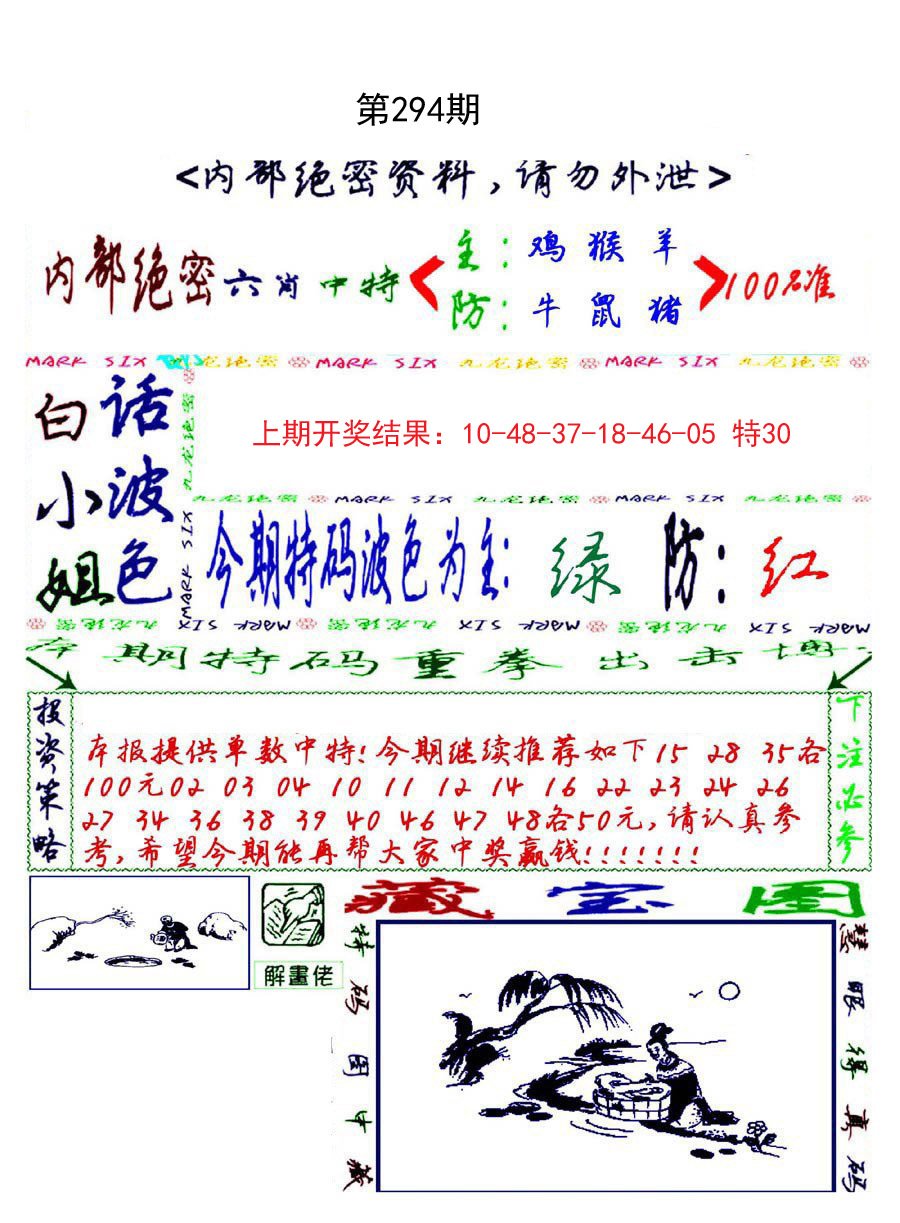 第294期
<内部绝密资料,请勿外泄>
内部绝密六肖中特
主:鸡猴羊
防:牛鼠猪
100%准
MARK SIX 九龙绝密 MARK SIX 九龙绝密 MARK SIX 九龙绝密
白话
小波
姐色
九龙绝密
MARK SIX
上期开奖结果：10-48-37-18-46-05 特30
九龙绝密 MARK SIX 九龙绝密 MARK SIX 九龙绝密
今期特码波色为主:绿 防:红
九龙绝密 MARK SIX 九龙绝密 MARK SIX 九龙绝密 MARK SIX
本期特码重拳出击博
投资策略
本报提供单数中特!今期继续推荐如下15 28 35各
100元02 03 04 10 11 12 14 16 22 23 24 26
27 34 36 38 39 40 46 47 48各50元,请认真参
考,希望今期能再帮大家中奖赢钱!!!!!!!
下注必参
解畫佬
藏宝图
特码图中藏
慧眼得真码